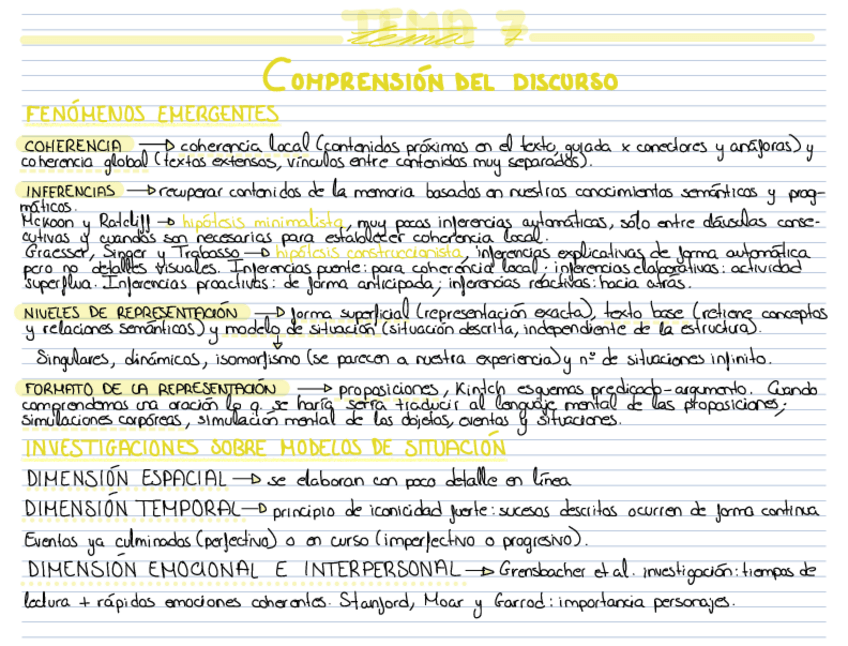 TEMA 7
tema
COMPRENSIÓN DEL DISCURSO
FENÓMENOS EMERGENTES
COHERENCIA → coherencia local (contenidos próximos en el texto, guiada x conectores y anáforas) y
coherencia global (textos extensos, vínculos entre contenidos muy separados).
INFERENCIAS → recuperar contenidos de la memoria basados en nuestros conocimientos semánticos y prag-
máticos.
McKoon y Ratcliff → hipótesis minimalista, muy pocas inferencias automáticas, sólo entre cláusulas conse-
cutivas y cuandos son necesarias para establecer coherencia local.
Graesser, Singer y Trabasso → hipótesis construccionista, inferencias explicativas de forma automática
pero no detalles visuales. Inferencias puente: para coherencia local; inferencias elaborativas: actividad
superflua. Inferencias proactivas: de forma anticipada; inferencias reactivas: hacia atrás.
NIVELES DE REPRESENTACIÓN → forma superficial (representación exacta), texto base (retiene conceptos
y relaciones semánticos) y modelo de situación (situación descrita, independiente de la estructura).
Singulares, dinámicos, isomorfismo (se parecen a nuestra experiencia) y nº de situaciones infinito.
FORMATO DE LA REPRESENTACIÓN → proposiciones, Kintch esquemas predicado-argumento. Cuando
comprendemos una oración lo q. se haría sería traducir al lenguaje mental de las proposiciones;
simulaciones corpóreas, simulación mental de los objetos, eventos y situaciones.
INVESTIGACIONES SOBRE MODELOS DE SITUACIÓN
DIMENSIÓN ESPACIAL → se elaboran con poco detalle en línea
DIMENSIÓN TEMPORAL → principio de iconicidad fuerte: sucesos descritos ocurren de forma continua
Eventos ya culminados (perfectivo) o en curso (imperfectivo o progresivo).
DIMENSIÓN EMOCIONAL E INTERPERSONAL → Grensbacher et al. investigación: tiempos de
lectura + rápidos emociones coherentes. Stanford, Moar y Garrod: importancia personajes.